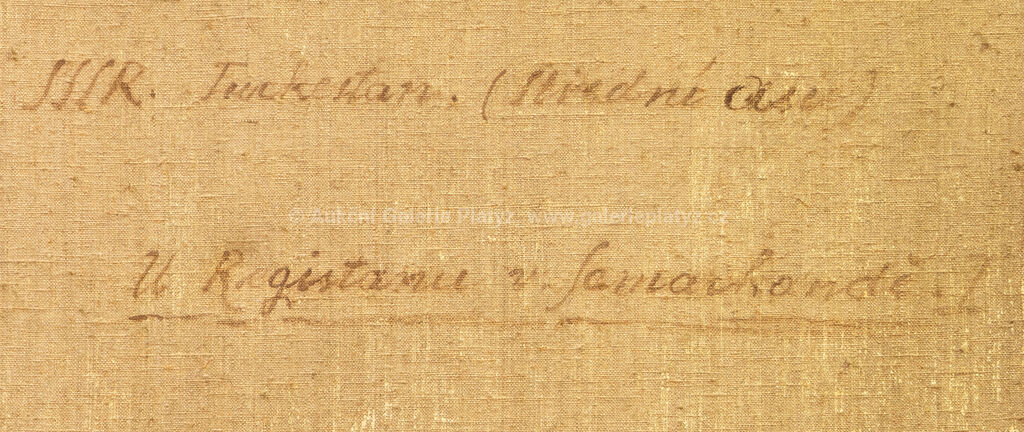 SSSR. Turkestan. (Střední asie)
© Aukční Galerie Platýz, www.galerieplatyz.cz
U Registanu v. Samarkandě.